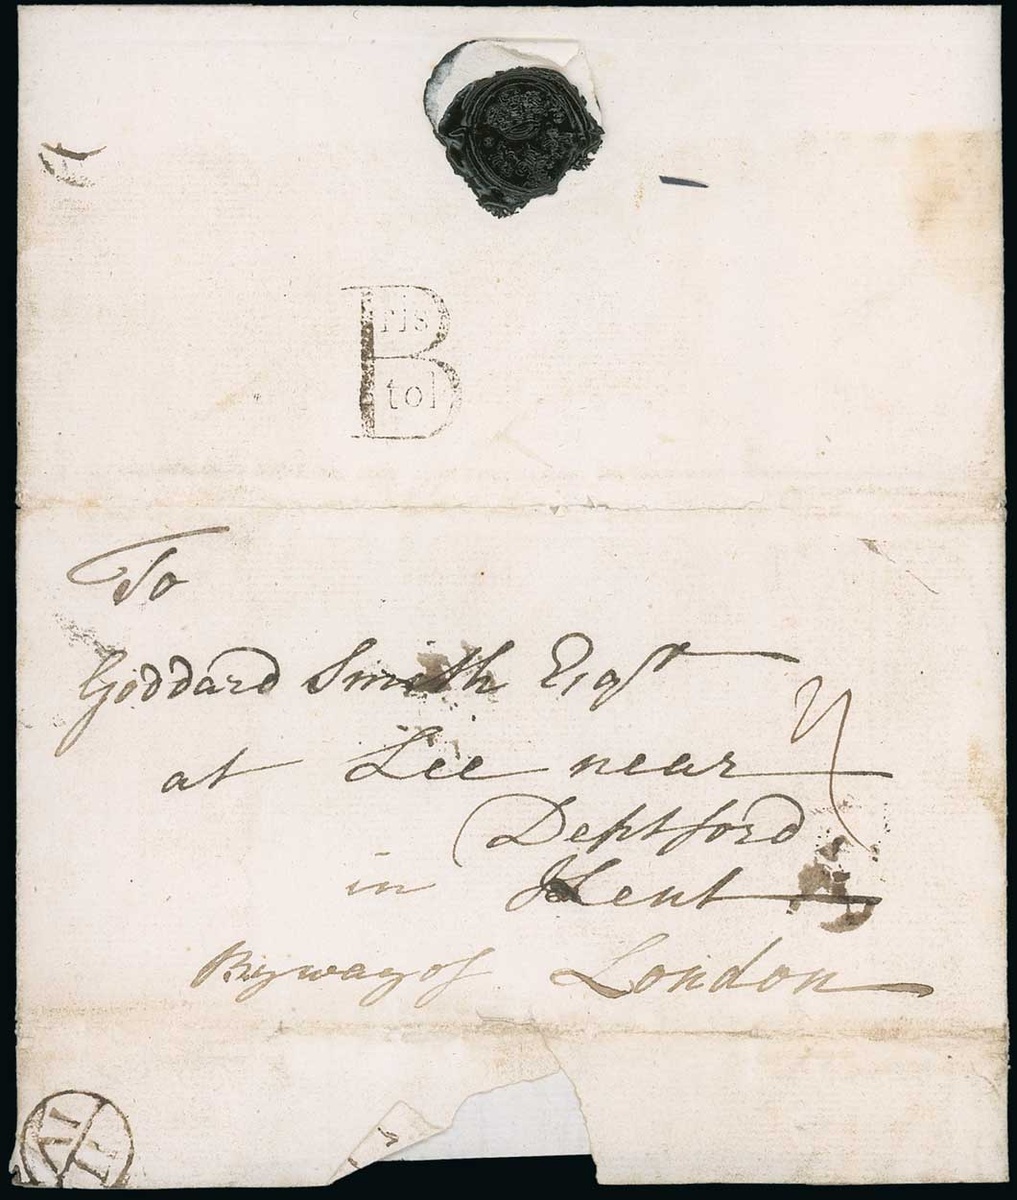 Bristol
To
Goddard Smith Esqr
at Lee near
Deptford
in Kent
By way of London